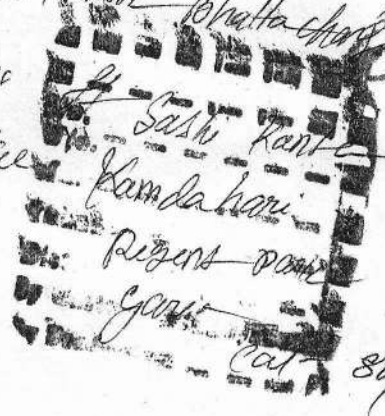 Bhattachary
Sashi Kanta
Kamdahari
Regent park
Garia
Cal